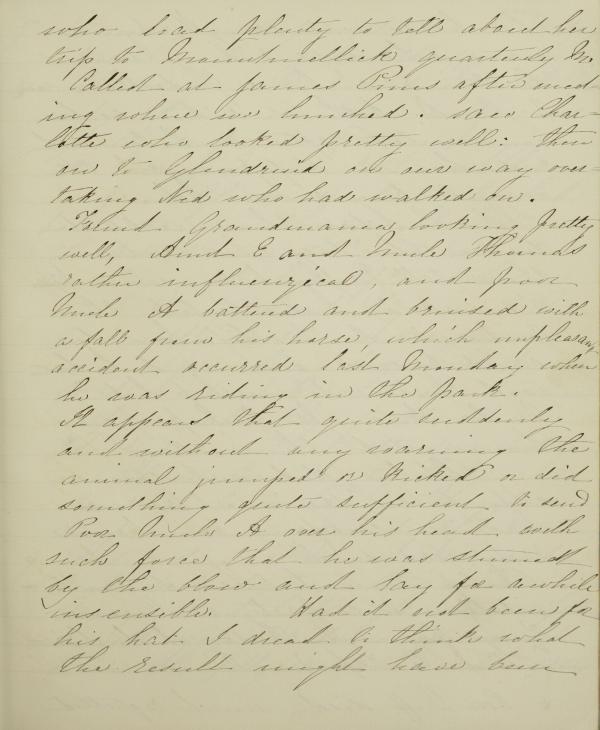 who had plenty to tell about her
trip to Mountmellick quarterly M.
Called at James Pims after meet-
ing where we lunched. saw Char=
lotte who looked pretty well: then
on to Glendruid on our way over=
taking Ned who had walked on.
Found Grandmama looking pretty
well, Aunt E and Uncle Thomas
rather influenzical, and poor
Uncle A battered and bruised with
a fall from his horse, which unpleasant
accident occurred last Monday when
he was riding in the park.
It appears that quite suddenly
and without any warning the
animal jumped or kicked or did
something quite sufficient to send
Poor Uncle A over his head with
such force that he was stunned
by the blow and lay for awhile
insensible. Had it not been for
his hat I dread to think what
the result might have been